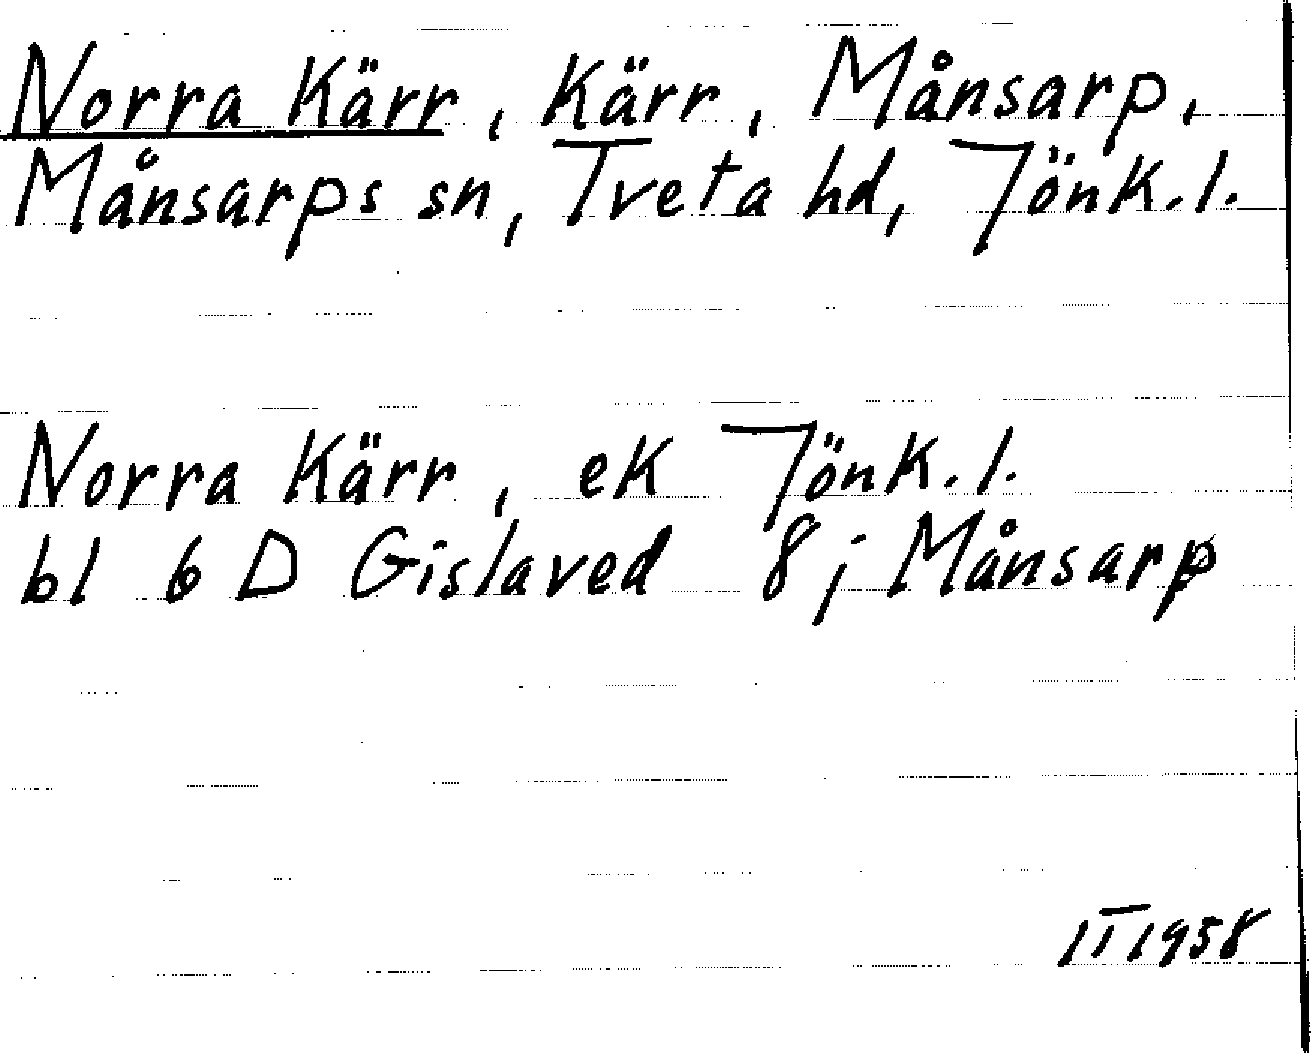 Norra Kärr, Kärr, Månsarp,
Månsarps sn, Tveta hd, Jönk.l.
Norra Kärr, ek Jönk.l.
bl 6 D Gislaved 8j Månsarp
1958